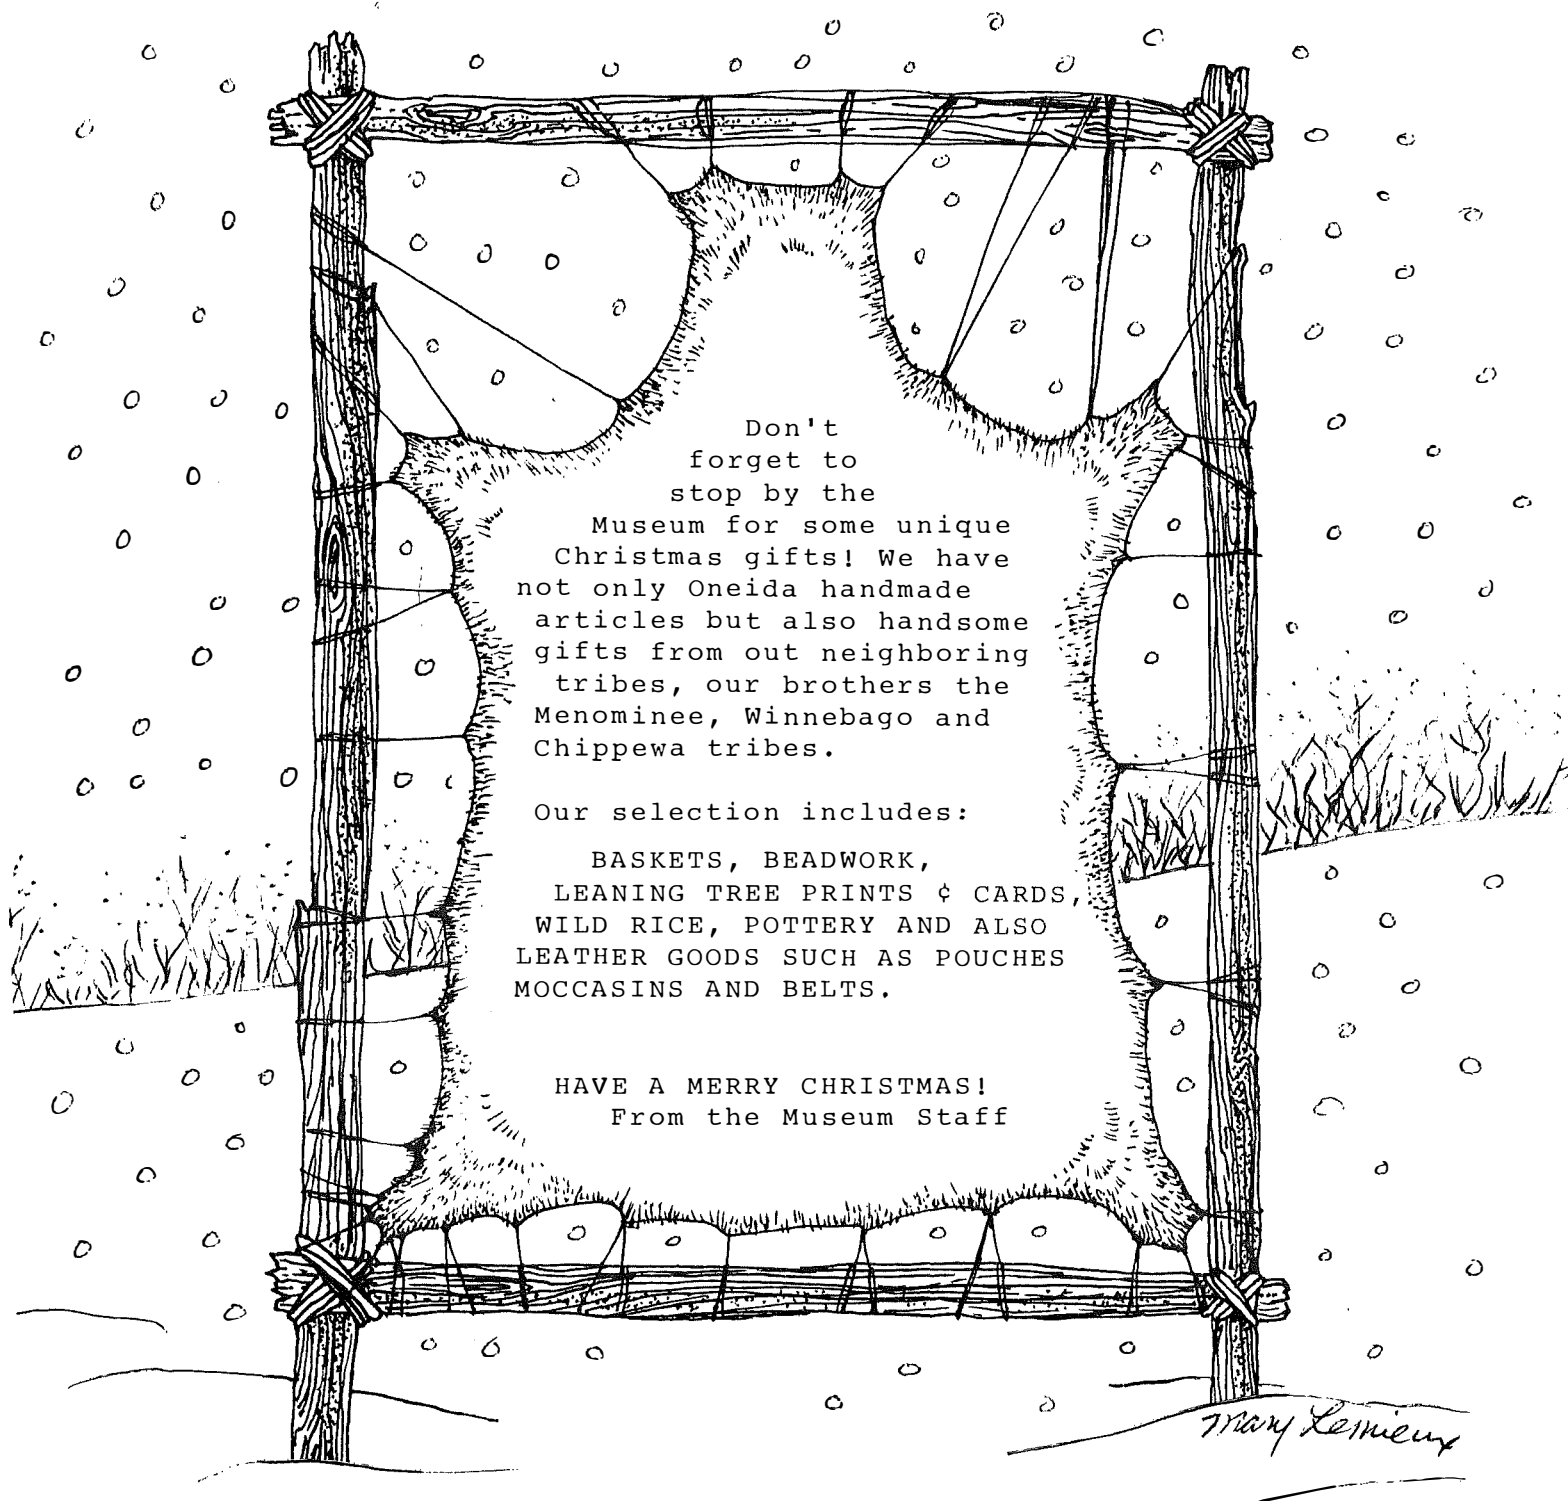 Don't
forget to
stop by the
Museum for some unique
Christmas gifts! We have
not only Oneida handmade
articles but also handsome
gifts from out neighboring
tribes, our brothers the
Menominee, Winnebago and
Chippewa tribes.
Our selection includes:
BASKETS, BEADWORK,
LEANING TREE PRINTS ¢ CARDS,
WILD RICE, POTTERY AND ALSO
LEATHER GOODS SUCH AS POUCHES
MOCCASINS AND BELTS.
HAVE A MERRY CHRISTMAS!
From the Museum Staff
Mary Lemieux